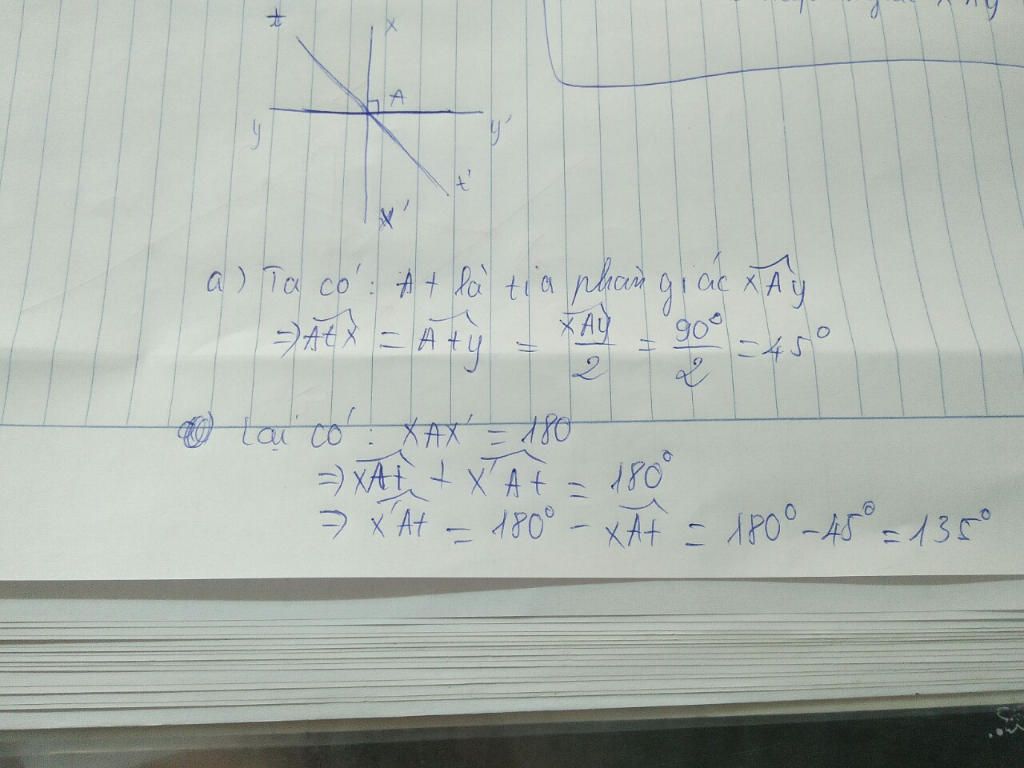 t x
A
y y'
t'
x'
a) Ta có: At là tia phân giác xAy
=> Atx = Aty = xAy/2 = 90°/2 = 45°
Lại có: xAx' = 180
=> xAt + x'At = 180°
=> x'At = 180° - xAt = 180° - 45° = 135°